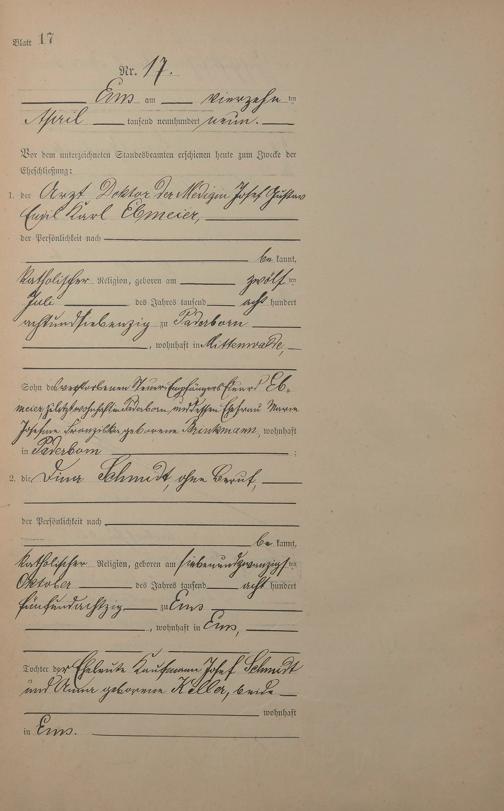 Blatt 17
Nr. 17.
Ems am vierzehnten
April tausend neunhundert neun.
Vor dem unterzeichneten Standesbeamten erschienen heute zum Zwecke der
Eheschließung:
1. der Arzt Doktor der Medizin Josef Gustav
Emil Karl Ebmeier,
der Persönlichkeit nach
be kannt,
katholischer Religion, geboren am zwölften
Juli des Jahres tausend acht hundert
achtundsiebenzig zu Paderborn
, wohnhaft in Mittenwalde,
Sohn des verstorbenen Steuer Empfängers Eb-
meier, zuletzt wohnhaft in Paderborn, und dessen Ehefrau Maria
Josefine Franziska geborene Brinkmann, wohnhaft
in Paderborn ;
2. die Dina Schmidt, ohne Beruf,
der Persönlichkeit nach
be kannt,
katholischer Religion, geboren am siebenundzwanzigsten
Oktober des Jahres tausend acht hundert
fünfundachtzig zu Ems
, wohnhaft in Ems,
Tochter der Eheleute Kaufmann Josef Schmidt
und Anna geborene Keller, beide
wohnhaft
in Ems.